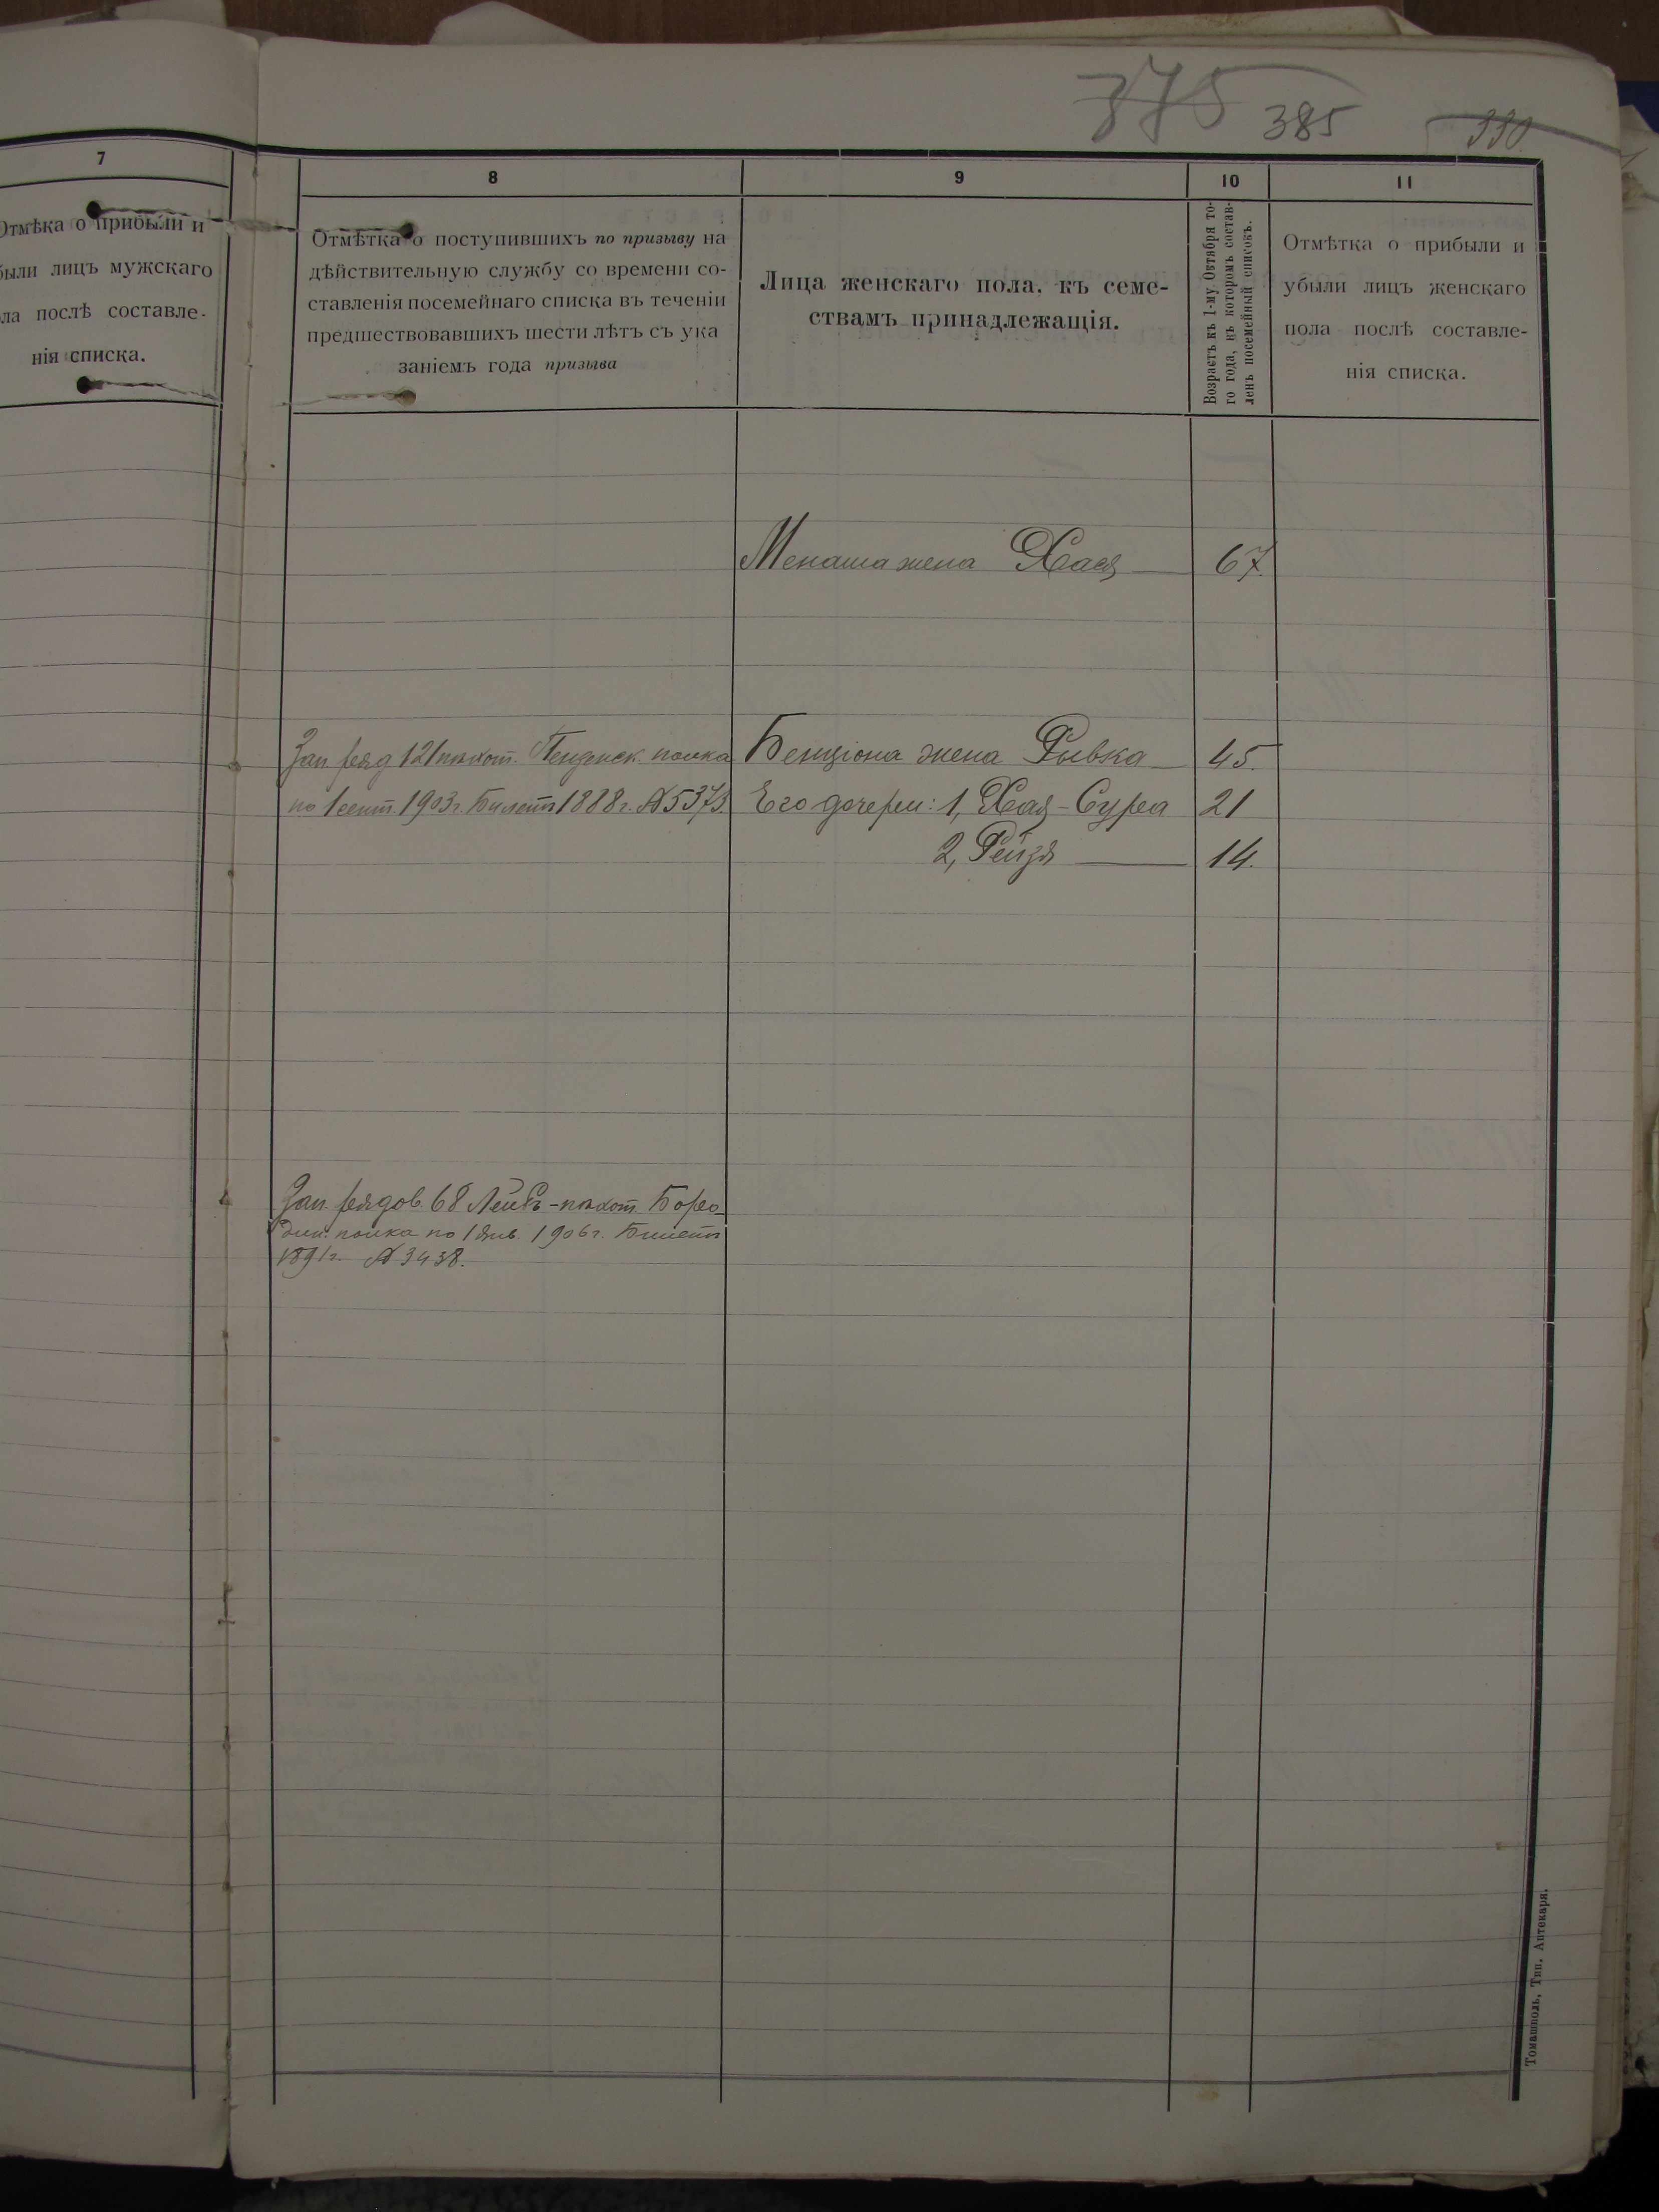 375 385 330
7
Отмѣка о прибыли и
были лицъ мужскаго
ла послѣ составле-
нія списка.
8
Отмѣтка о поступившихъ по призыву на
дѣйствительную службу со времени со-
ставленія посемейнаго списка въ теченіи
предшествовавшихъ шести лѣтъ съ ука
заніемъ года призыва
9
Лица женскаго пола, къ семе-
ствамъ принадлежащія.
10
Возрастъ къ 1-му Октября то-
го года, въ которомъ состав-
ленъ посемейный списокъ.
11
Отмѣтка о прибыли и
убыли лицъ женскаго
пола послѣ составле-
нія списка.
Менаша жена Хая 67.
Зап. ряд 121 пѣхот. полка
по 1 сент. 1903 г. Билетъ 1888 г. № 5373.
Бенціона жена Рывка 45.
Его дочери: 1, Хая-Сура 21
2, Рейзя 14.
Зап. рядов. 68 Лейбъ-пѣхот. Боро-
дин. полка по 1 Янв. 1906 г. Билетъ
1891 г. № 3438.
Томашполь, Тип. Аптекаря.